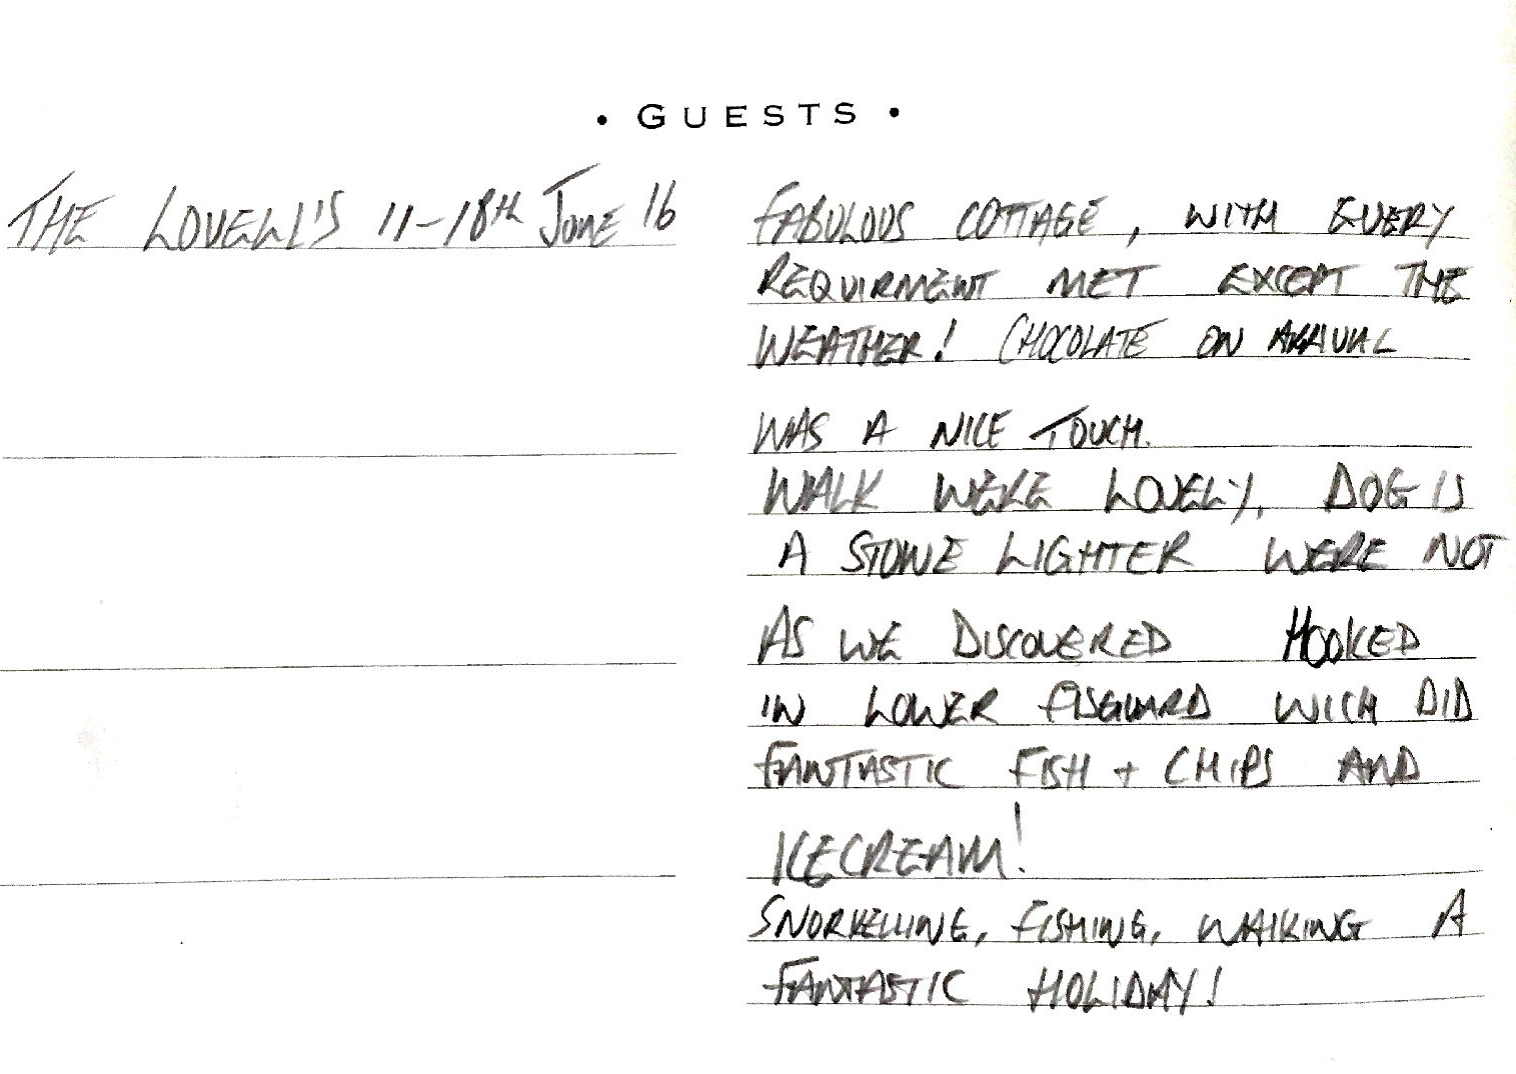 • GUESTS •
THE LOVELL'S 11-18th June 16
FABULOUS COTTAGE, WITH EVERY
REQUIRMENT MET EXCEPT THE
WEATHER! CHOCOLATE ON ARRIVAL
WAS A NICE TOUCH.
WALK WERE LOVELY, DOG IS
A STONE LIGHTER WERE NOT
AS WE DISCOVERED HOOKED
IN LOWER FISGUARD WICH DID
FANTASTIC FISH + CHIPS AND
ICECREAM!
SNORKELLING, FISHING, WALKING A
FANTASTIC HOLIDAY!